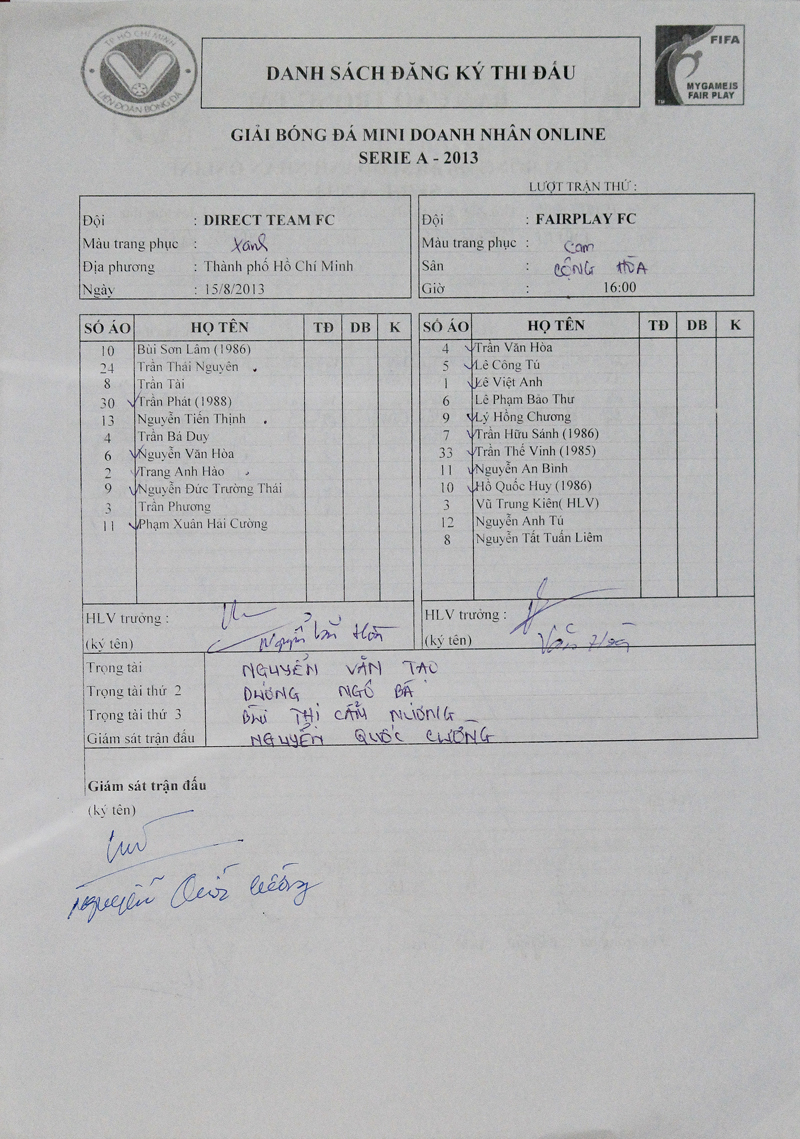 TP HỒ CHÍ MINH
LIÊN ĐOÀN BÓNG ĐÁ
DANH SÁCH ĐĂNG KÝ THI ĐẤU
FIFA
MY GAME IS
FAIR PLAY
GIẢI BÓNG ĐÁ MINI DOANH NHÂN ONLINE
SERIE A - 2013
LƯỢT TRẬN THỨ :
Đội : DIRECT TEAM FC
Màu trang phục : Xanh
Địa phương : Thành phố Hồ Chí Minh
Ngày : 15/8/2013
Đội : FAIRPLAY FC
Màu trang phục : Cam
Sân : CỘNG HÒA
Giờ : 16:00
SỐ ÁO HỌ TÊN TĐ DB K
10 Bùi Sơn Lâm (1986)
24 Trần Thái Nguyên
8 Trần Tài
30 Trần Phát (1988)
13 Nguyễn Tiến Thịnh
4 Trần Bá Duy
6 Nguyễn Văn Hòa
2 Trang Anh Hào
9 Nguyễn Đức Trường Thái
3 Trần Phương
11 Phạm Xuân Hải Cường
SỐ ÁO HỌ TÊN TĐ DB K
4 Trần Văn Hòa
5 Lê Công Tú
1 Lê Việt Anh
6 Lê Phạm Bảo Thư
9 Lý Hồng Chương
7 Trần Hữu Sánh (1986)
33 Trần Thế Vinh (1985)
11 Nguyễn An Bình
10 Hồ Quốc Huy (1986)
3 Vũ Trung Kiên( HLV)
12 Nguyễn Anh Tú
8 Nguyễn Tất Tuấn Liêm
HLV trưởng :
(ký tên) Nguyễn Văn Hòa
HLV trưởng :
(ký tên) Văn Hoà
Trọng tài NGUYỄN VĂN TAO
Trọng tài thứ 2 DƯƠNG NGÔ BÁ
Trọng tài thứ 3 BÙI THỊ CẨM NƯƠNG
Giám sát trận đấu NGUYỄN QUỐC CƯỜNG
Giám sát trận đấu
(ký tên)
Nguyễn Quốc Cường